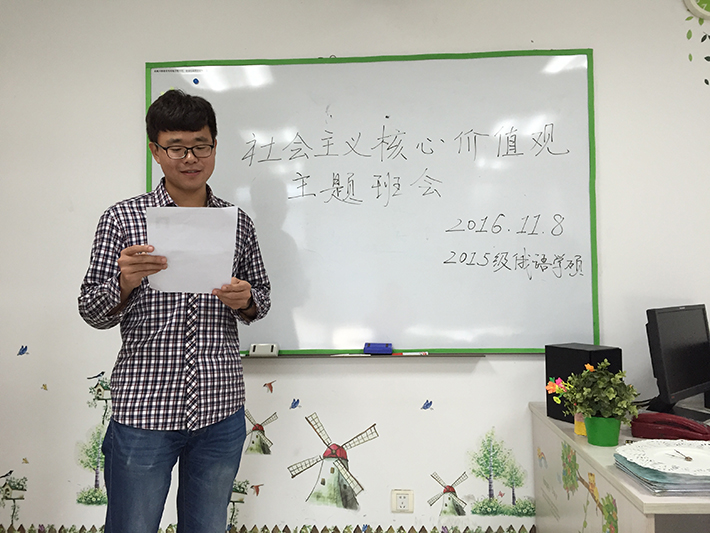 社会主义核心价值观
主题班会
2016.11.8
2015级俄语学硕